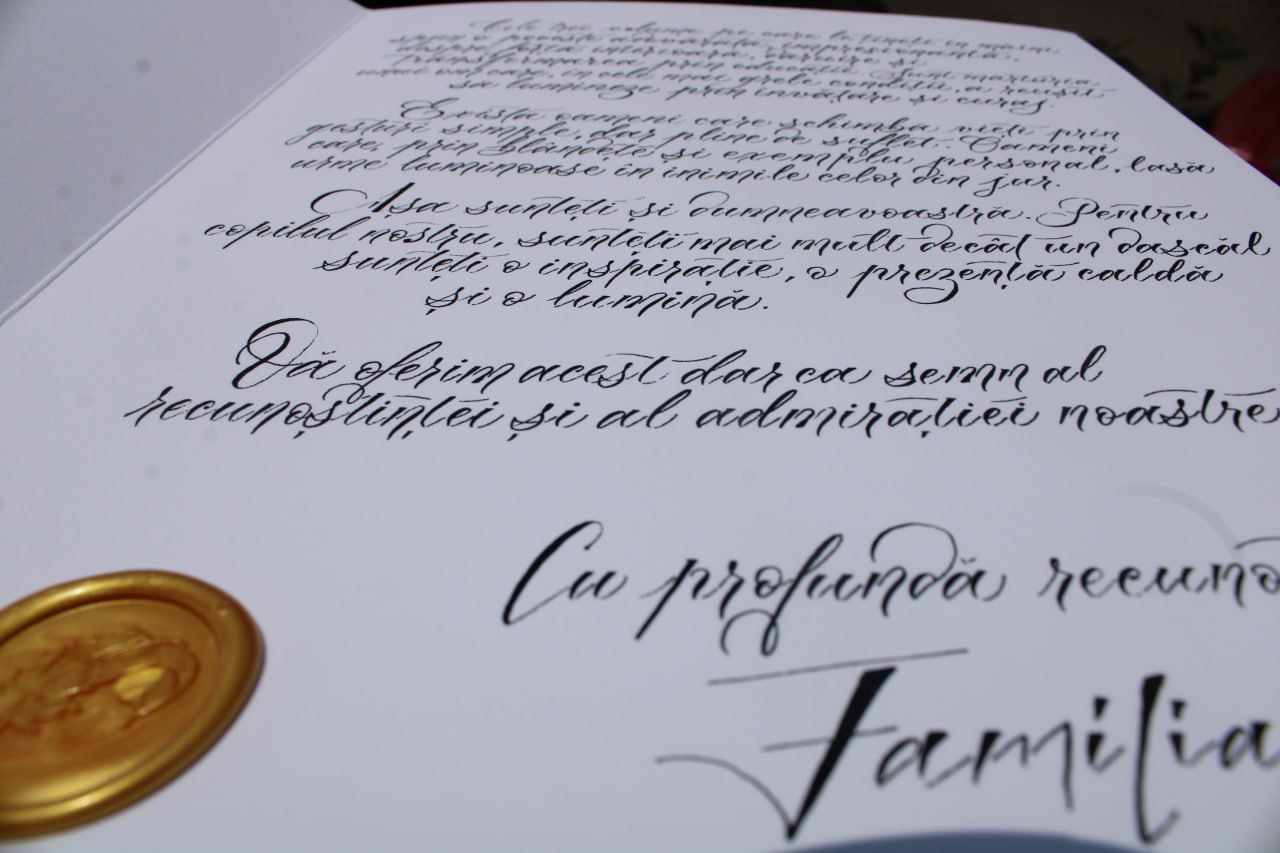 Cele trei volume pe care le țineți în mâini
spun o poveste adevărată, impresionantă,
despre forța interioară, dăruire și
transformarea prin educație. Sunt mărturia
unui om care, în cele mai grele condiții, a reușit
să lumineze prin învățare și curaj.
Există oameni care schimbă vieți prin
gesturi simple, dar pline de suflet. Oameni
care, prin blândețe și exemplu personal, lasă
urme luminoase în inimile celor din jur.
Așa sunteți și dumneavoastră. Pentru
copilul nostru, sunteți mai mult decât un dascăl
sunteți o inspirație, o prezență caldă
și o lumină.
Vă oferim acest dar ca semn al
recunoștinței și al admirației noastre
Cu profundă recuno
Familia